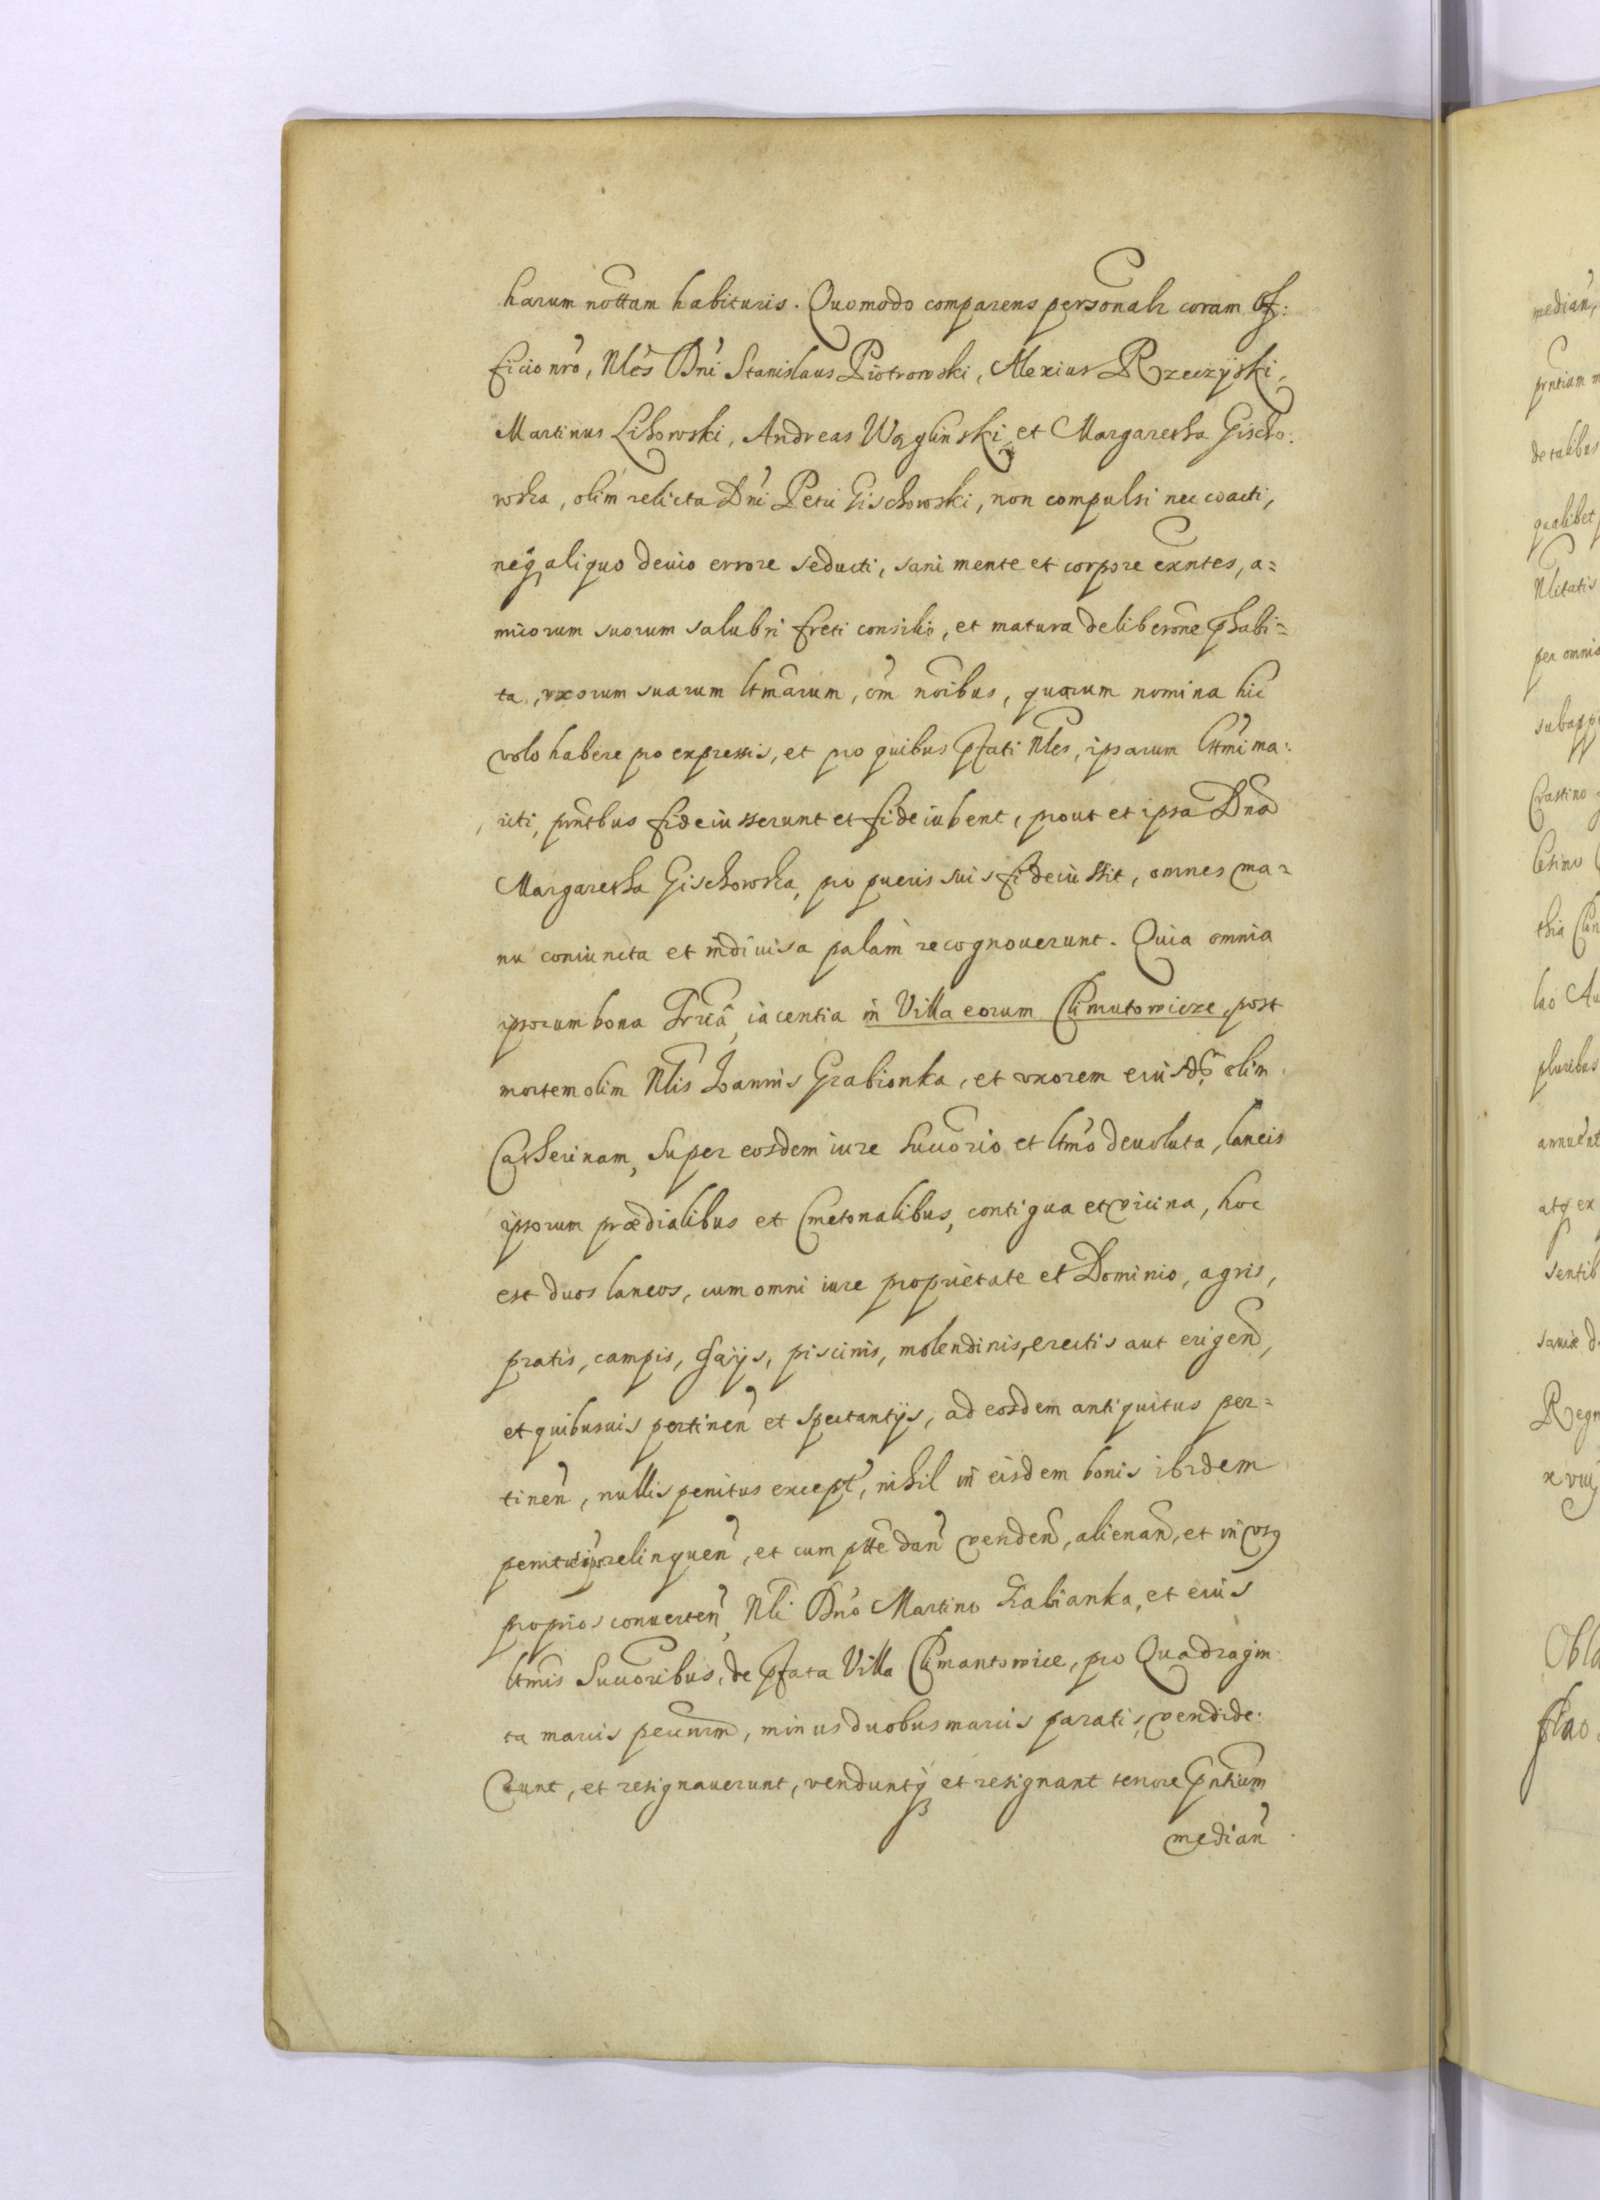 harum nottam habituris. Quomodo comparens personalr coram Of:
ficio nr̃o, Nlẽs Dñi Stanislaus Piotrowski, Alexius Rzeczyski,
Martinus Lihowski, Andreas Węglinski, et Margaretha Gischo:
wska, olim relicta Dñi Petri Gischowski, non compulsi nec coacti,
neq aliquo deuio errore seducti, sani mente et corpore exñtes, a=
micorum suorum salubri freti consilio, et matura deliberõne phabi=
ta, uxorum suarum ltm̃arum, om̃ nõibus, quorum nomina hic
volo habere pro expressis, et pro quibus pfati Nles, ipsarum lttm̃i ma:
riti, pñtbus fideiusserunt et fideiubent, prout et ipsa Dña
Margaretha Gischowska, pro pueris suis fideiussit, omnes ma=
nu coniuncta et indiuisa palam recognouerunt. Quia omnia
ipsorum bona Trriã, iacentia in Villa eorum Climutowicze, post
mortem olim Nlis Ioannis Grabionka, et uxorem eiusd̃ olim
Catherinam, super eosdem iure succõrio et ltm̃o deuoluta, laneis
ipsorum prædialibus et Cmetonalibus, contigua et vicina, hoc
est duos laneos, cum omni iure proprietate et Dominio, agris,
pratis, campis, Gaijs, piscinis, molendinis, erectis aut erigen̄,
et quibusuis pertinen̄ et spectantijs, ad eosdem antiquitus per=
tinen̄, nullis penitus except̃, nihil in eisdem bonis ibidem
penitus relinquen̄, et cum ptte dan̄ venden̄, alienan̄, et in vsq
proprios conuerten̄, Nli Dño Martino Grabianka, et eius
ltm̃is Succoribus, de pfata Villa Climantowice, pro Quadragin:
ta marcis pecunrm̃, minus duobus marcis paratis, vendide:
runt, et resignauerunt, venduntq et resignant tenore p̃ntium
median̄